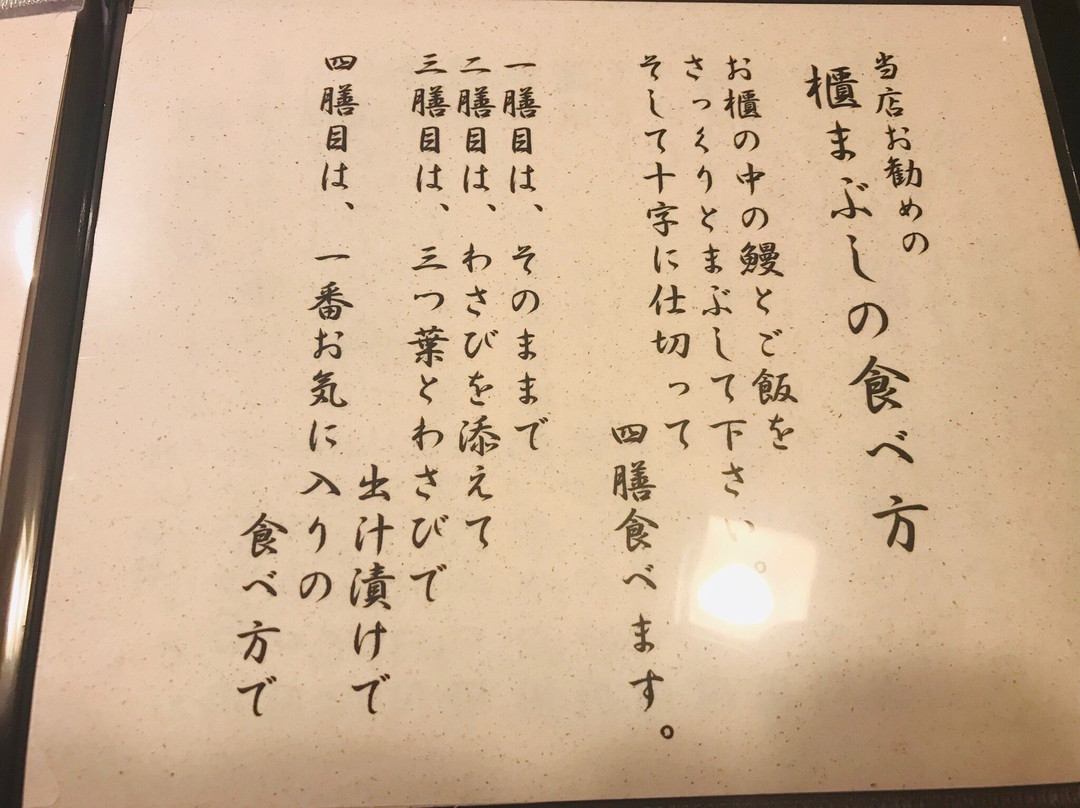 当店お勧めの
櫃まぶしの食べ方
お櫃の中の鰻とご飯を
さっくりとまぶして下さい。
そして十字に仕切って
四膳食べます。
一膳目は、そのままで
二膳目は、わさびを添えて
三膳目は、三つ葉とわさびで
出汁漬けで
四膳目は、一番お気に入りの
食べ方で